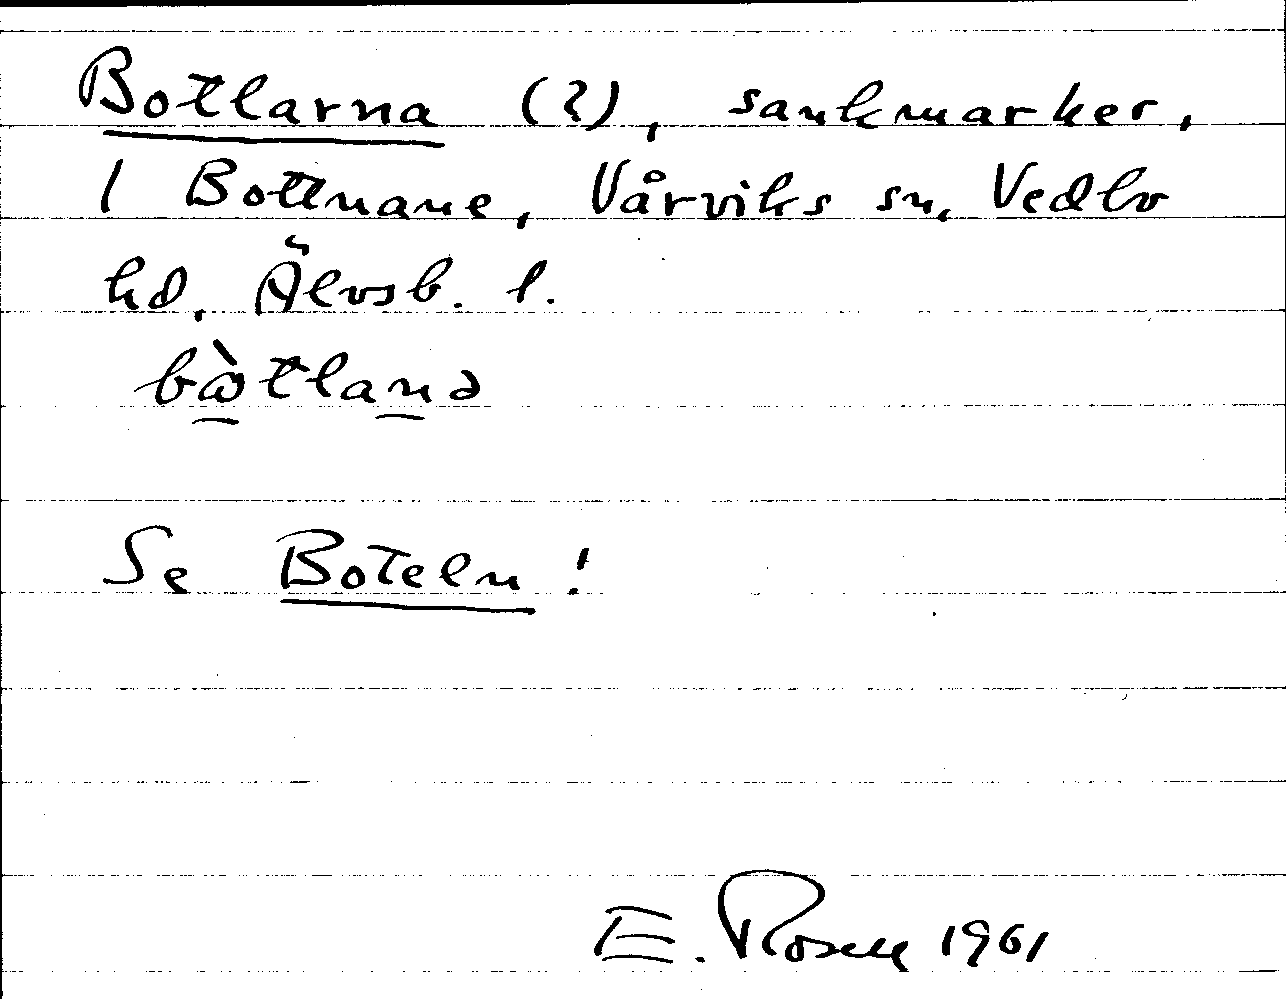 Botlarna (?), sankmarker,
1 Bottnane, Vårviks sn, Vedbo
hd, Älvsb. l.
bòtlanə
Se Boteln!
E. Rosell 1961